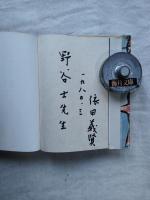 野谷士先生
一九八〇・三
依田義賢
海月文庫